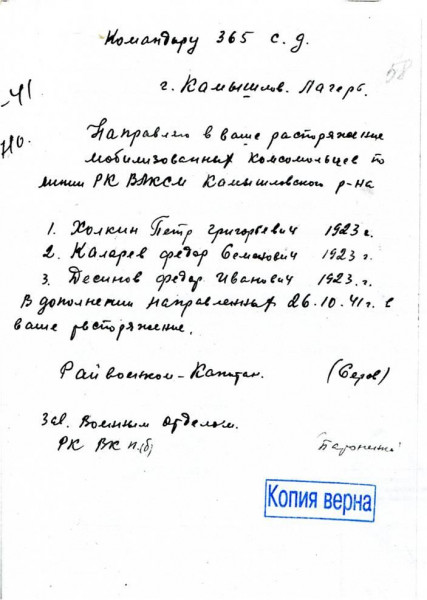 Командиру 365 с.д.
58
г. Камышлов. Лагерь.
-41
Направляю в ваше распоряжение
мобилизованных комсомольцев по
линии РК ВЛКСМ Камышловского р-на
1. Холкин Петр Григорьевич 1923 г.
2. Каларев Федор Семенович 1923 г.
3. Десинов Федор Иванович 1923.г.
В дополнении направленных 26.10.41г. в
ваше распоряжение.
Райвоенком-Капитан. (Серов)
Зав. Военным отделом
РК ВКП(б)
Копия верна